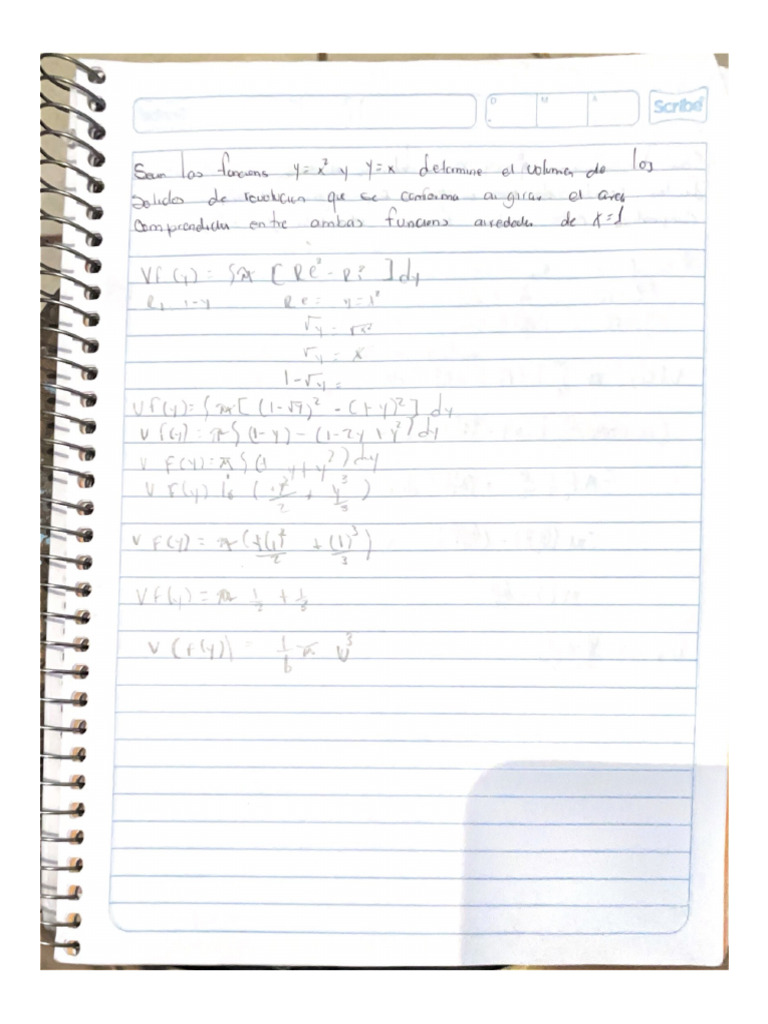 Scribe
D M A
Sean las funcions y=x² y y=x determine el volumen de los
solidos de revolucion que se conforma al girar el area
comprendida entre ambas funcions alrededor de x=1
Vf(y) = ∫π [Re² - Ri² ] dy
Ri 1-y Re = y=x²
√y = √x²
√y = x
1-√y =
V f(y) = ∫π [ (1-√y)² - (1-y)² ] dy
V f(y) = π∫ (1-y) - (1-2y+y²) dy
V F(y) = π ∫ (1 y+y²) dy
V F(y) ( y²/2 + y³/3 )
V F(y) = π ( (1)²/2 + (1)³/3 )
V f(y) = π 1/2 + 1/3
V (f(y)) = 1/6 π U³